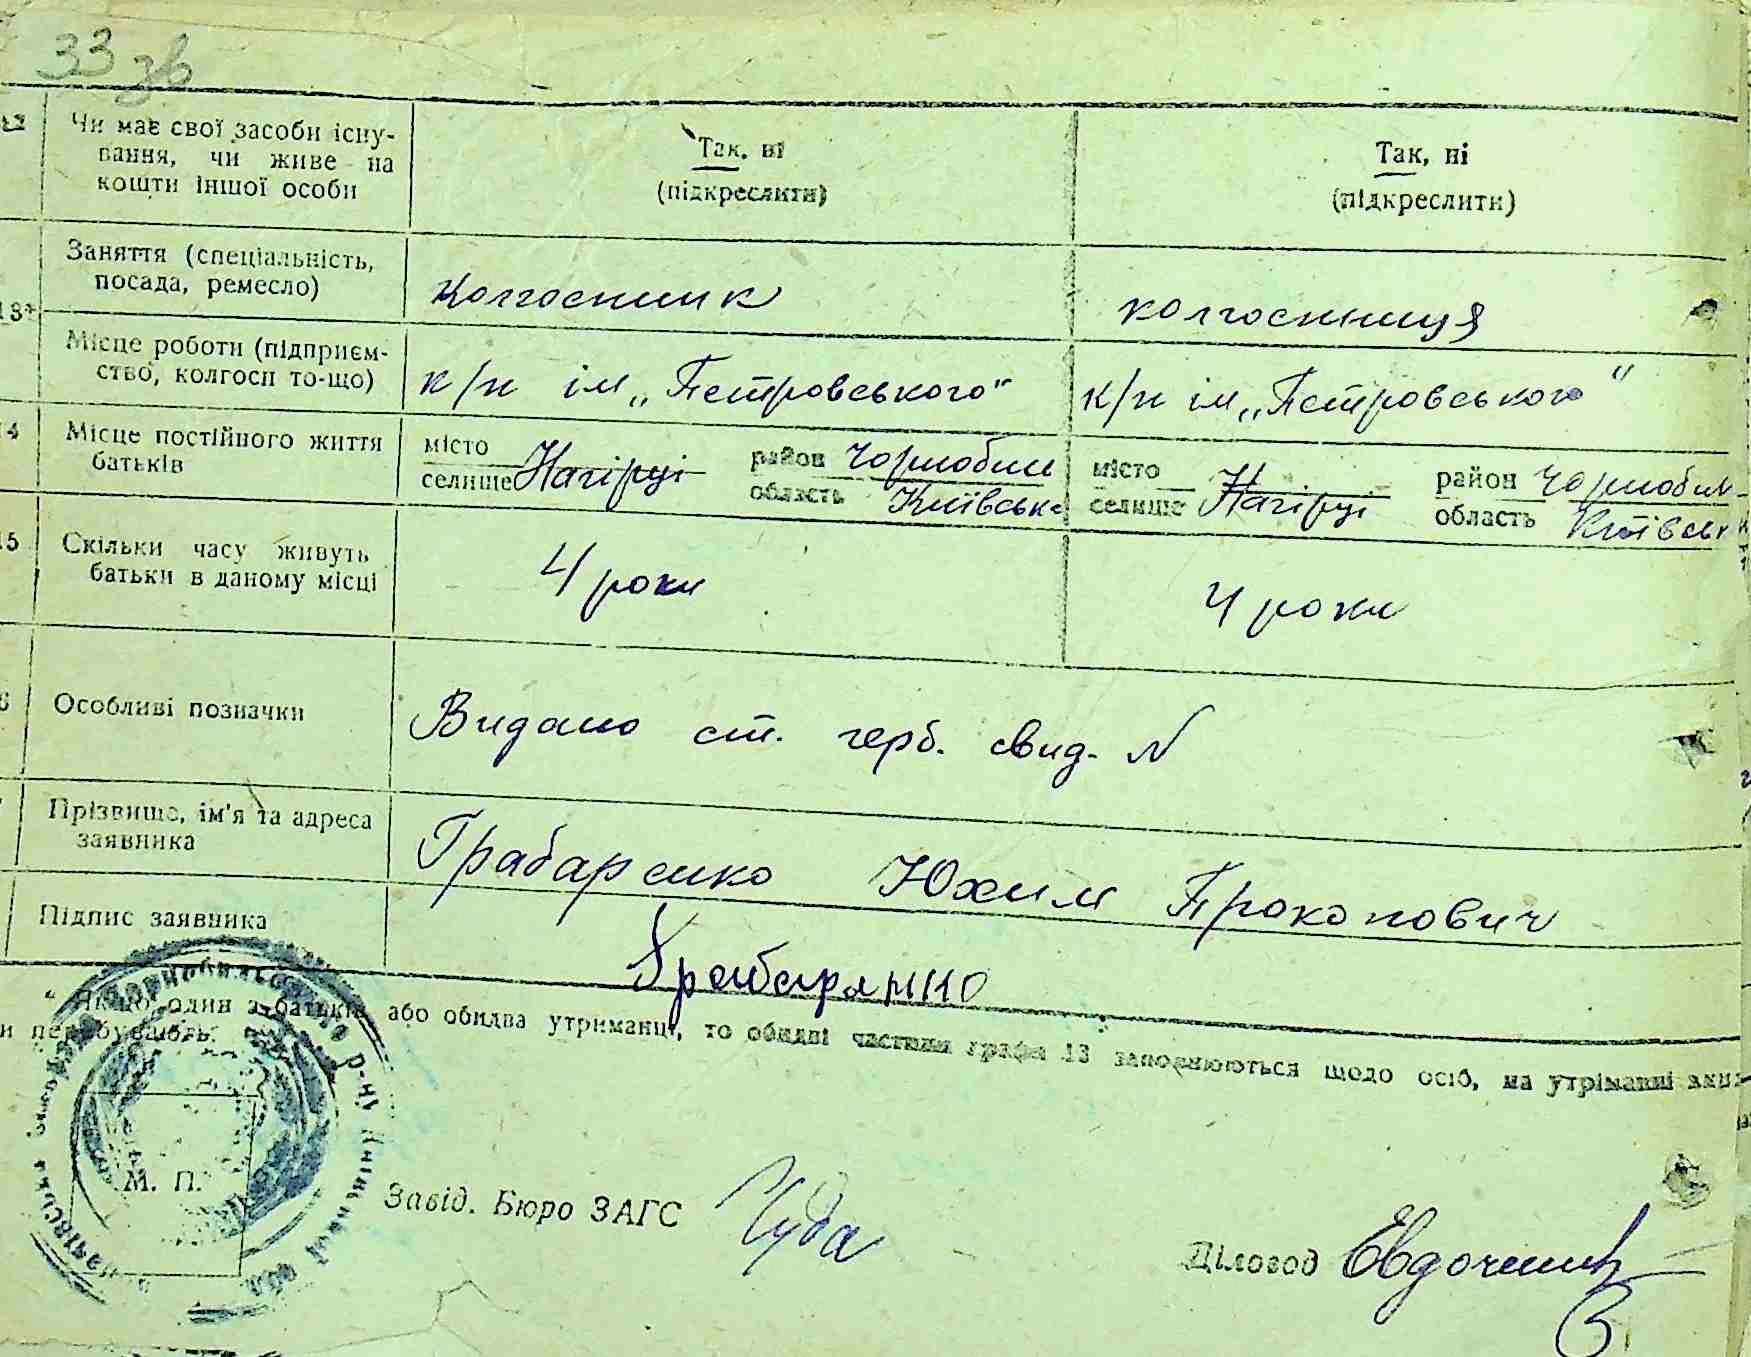 33 зв
Чи має свої засоби існу-
вання, чи живе на
кошти іншої особи
Так, ні
(підкреслити)
Так, ні
(підкреслити)
13*
Заняття (спеціальність,
посада, ремесло)
колгоспник
колгоспниця
Місце роботи (підприєм-
ство, колгосп то-що)
к/п ім „Петровського“
к/п ім „Петровського“
14
Місце постійного життя
батьків
місто
селище Нагірці
район Чорнобил
область Київськ
місто
селище Нагірці
район Чорнобил
область Київськ
15
Скільки часу живуть
батьки в даному місці
4 роки
4 роки
6
Особливі позначки
Видано ст. герб. свид. N
Прізвище, ім'я та адреса
заявника
Грабаренко Юхим Прокопович
Підпис заявника
* Якщо один з батьків або обидва утриманці, то обидві частини графи 13 заповнюються щодо осіб, на утриманні яких
и перебувають.
М. П.
Завід. Бюро ЗАГС
Діловод